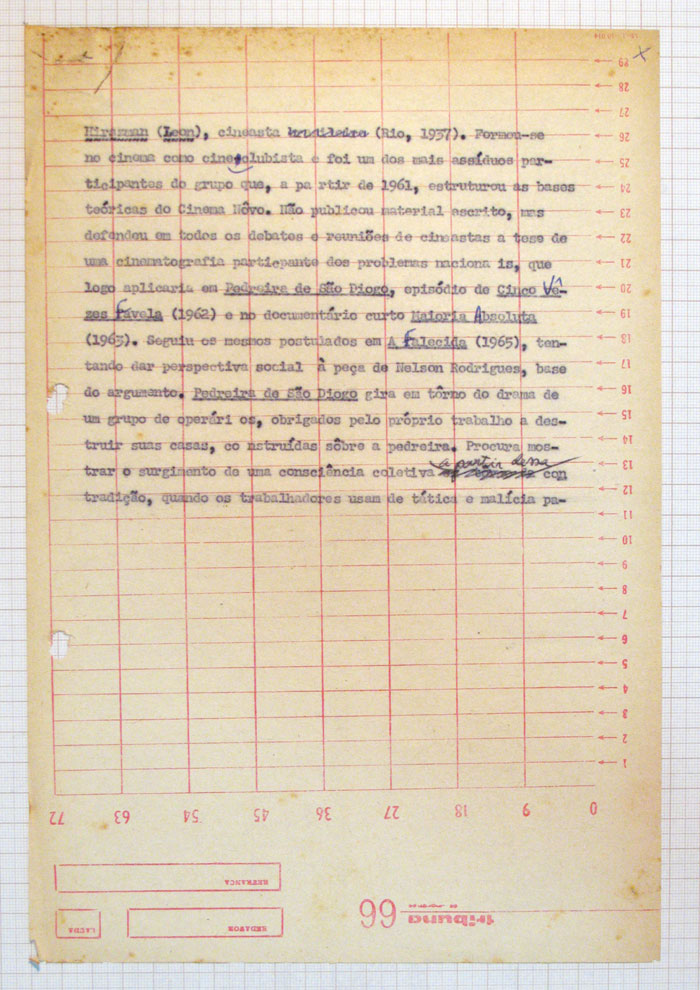 Hirszman (Leon), cineasta brasileiro (Rio, 1937). Formou-se
no cinema como cineclubista e foi um dos mais assíduos par-
ticipantes do grupo que, a pa rtir de 1961, estruturou as bases
teóricas do Cinema Nôvo. Não publicou material escrito, mas
defendeu em todos os debates e reuniões de cineastas a tese de
uma cinematografia participante dos problemas naciona is, que
logo aplicaria em Pedreira de São Diogo, episódio de Cinco Vê-
zes Favela (1962) e no documentário curto Maioria Absoluta
(1963). Seguiu os mesmos postulados em A Falecida (1965), ten-
tando dar perspectiva social à peça de Nelson Rodrigues, base
do argumento. Pedreira de São Diogo gira em tôrno do drama de
um grupo de operári os, obrigados pelo próprio trabalho a des-
truir suas casas, co nstruídas sôbre a pedreira. Procura mos-
trar o surgimento de uma consciência coletiva a partir dessa con
tradição, quando os trabalhadores usam de tática e malícia pa-
29
28
27
26
25
24
23
22
21
20
19
18
17
16
15
14
13
12
11
10
9
8
7
6
5
4
3
2
1
72 63 54 45 36 27 18 9 0
RETRANCA
LAUDA REDATOR
66 tribuna